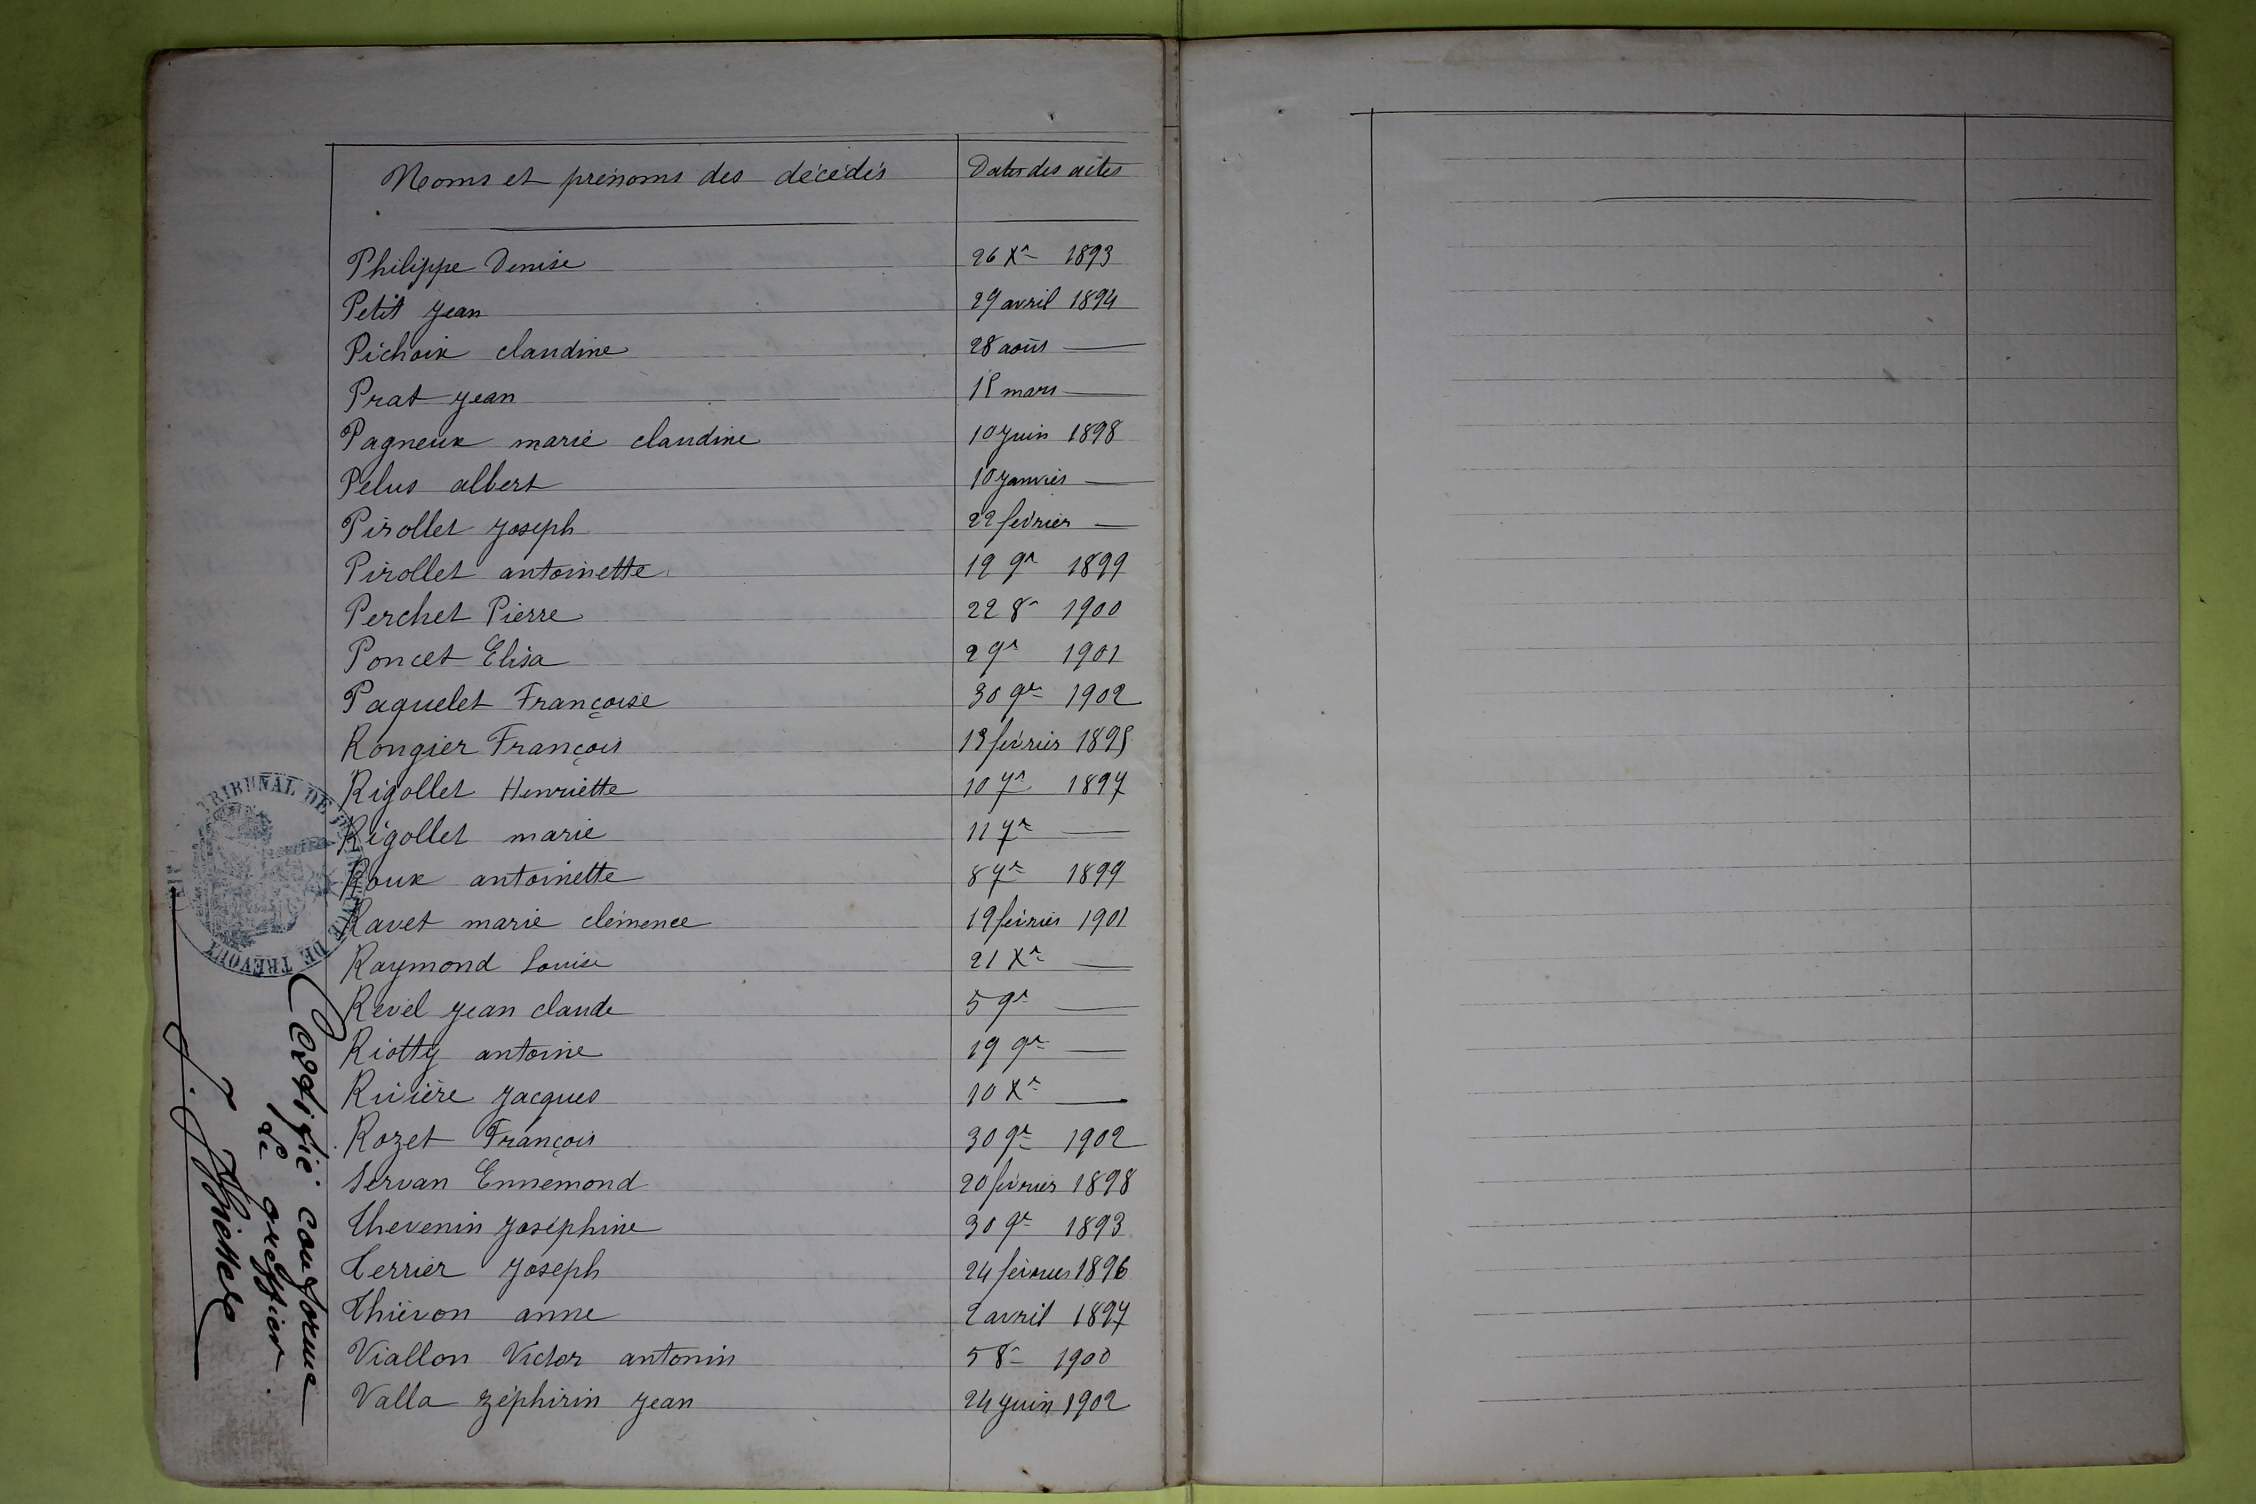 Noms et prénoms des décédés Dates des actes
Philippe Denise 26 Xr 1893
Petit Jean 29 avril 1894
Pichoix claudine 28 août —
Prat Jean 15 mars —
Pagneux marie claudine 10 Juin 1898
Pelus albert 10 Janvier —
Pirollet Joseph 22 février —
Pirollet antoinette 12 9r 1899
Perchet Pierre 22 8r 1900
Poncet Elisa 2 9r 1901
Paquelet Françoise 30 9r 1902
Rongier François 13 février 1895
Rigollet Henriette 10 7r 1897
Rigollet marie 11 7r —
Roux antoinette 8 7r 1899
Ravet marie clémence 19 février 1901
Raymond Louise 21 Xr —
Revel Jean claude 5 9r —
Riotty antoine 19 9r —
Rivière Jacques 10 Xr —
Rozet François 30 9r 1902
Servan Ennemond 20 février 1898
Thevenin Joséphine 30 9r 1893
Terrier Joseph 24 février 1896
Thiévon anne 2 avril 1897
Viallon Victor antonin 5 8r 1900
Valla Zéphirin Jean 24 Juin 1902
TRIBUNAL DE
DE TRÉVOUX
Certifié conforme
Le greffier.